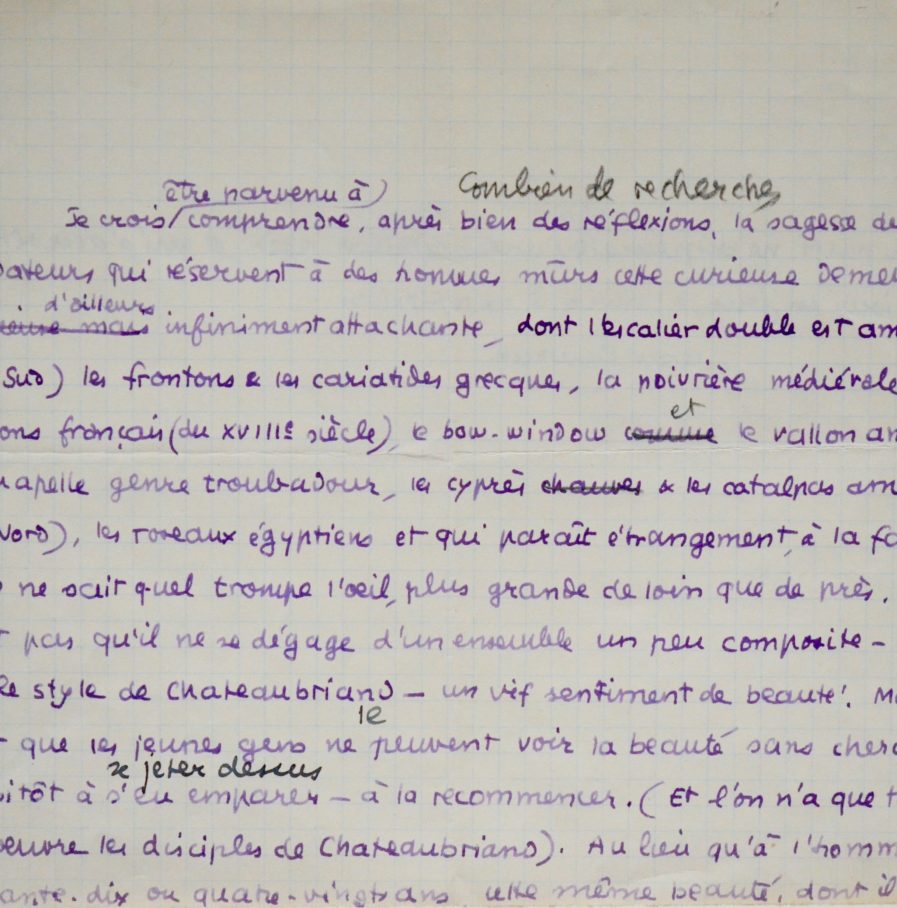 être parvenu à) Combien de recherches
Je crois/comprendre, après bien des réflexions, la sagesse de
dateurs qui réservent à des hommes mûrs cette curieuse demeu
d'ailleurs
mais infiniment attachante, dont l'escalier double est am
Sud) les frontons & les cariatides grecques, la poivrière médiévale
et
ons français (du XVIIIe siècle), le bow-window comme le vallon an
hapelle genre troubadour, les cyprès chauves & les catalpas am
Nord), les roseaux égyptiens et qui paraît étrangement, à la fa
ne sait quel trompe l'oeil, plus grande de loin que de près.
pas qu'il ne se dégage d'un ensemble un peu composite -
le style de Chateaubriand — un vif sentiment de beauté. Ma
le
que les jeunes gens ne peuvent voir la beauté sans cherc
se jeter dessus
sitôt à s'en emparer — à la recommencer. (Et l'on n'a que t
oeuvre les disciples de Chateaubriand). Au lieu qu'à l'homm
ante-dix ou quatre-vingts ans cette même beauté, dont il